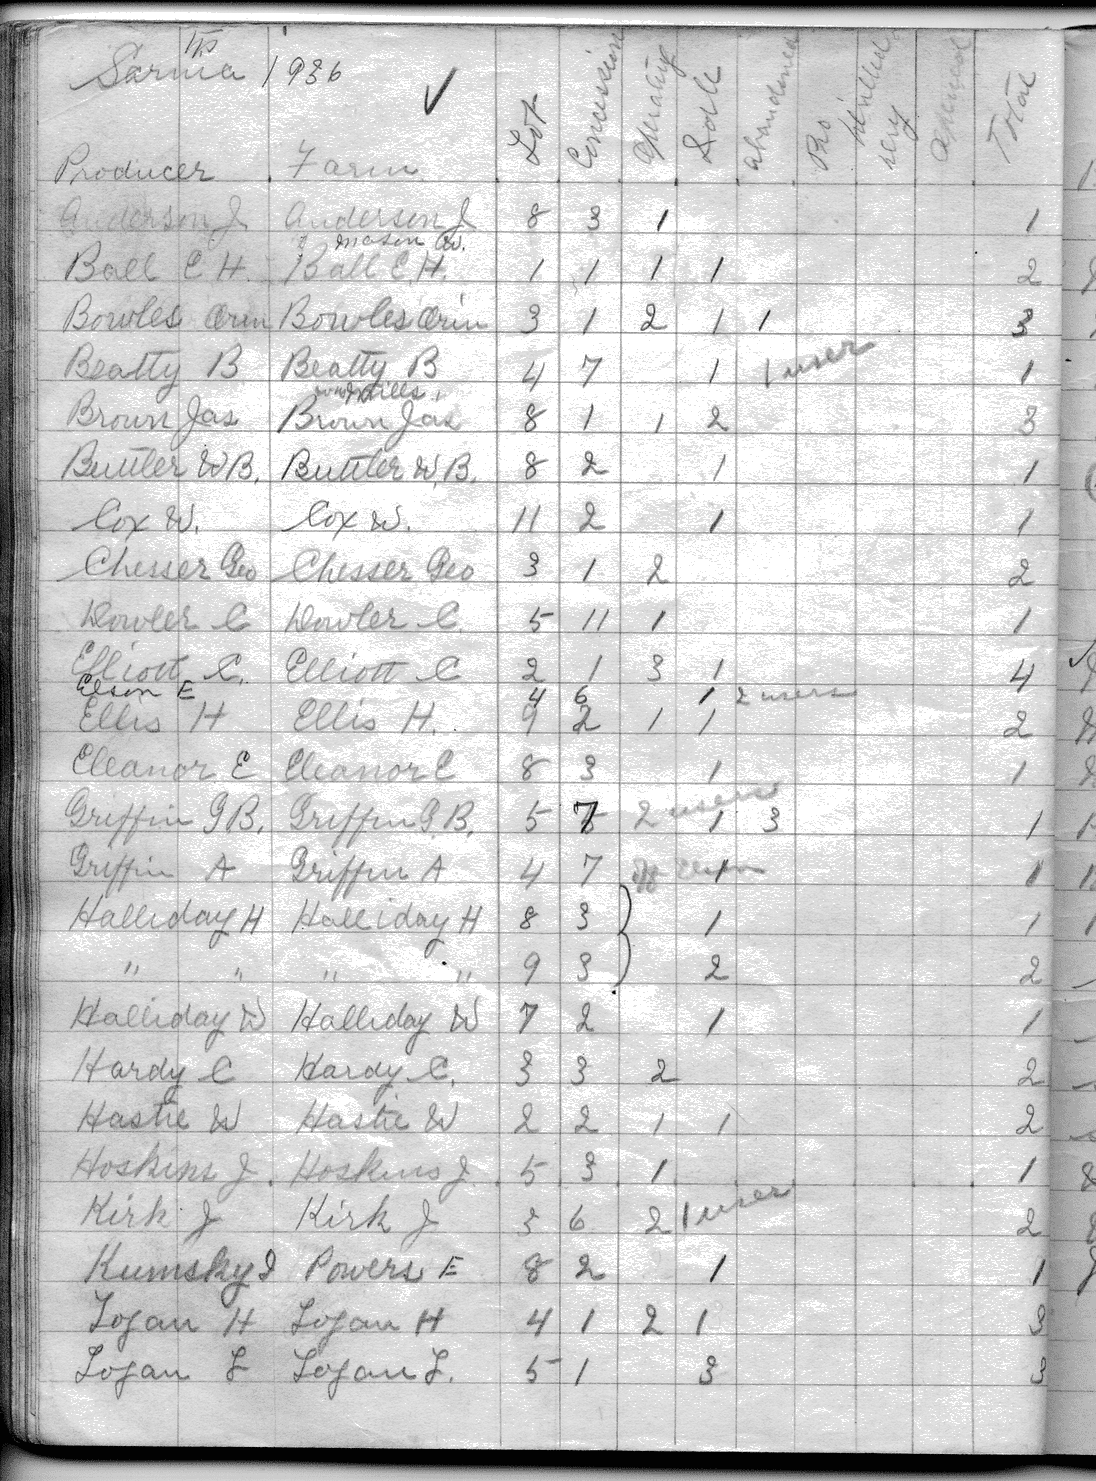 Sarnia Tp 1936 ✓
Producer Farm Lot Concession Operating Idle abandoned Total
Anderson J Anderson J 8 3 1 1
Mason W.
Ball E H. Ball E.H. 1 1 1 1 2
Bowles Orin Bowles Orin 3 1 2 1 1 3
Beatty B Beatty B 4 7 1 1 user 1
windmills
Brown Jas Brown Jas 8 1 1 2 3
Buttler W B. Buttler W. B. 8 2 1 1
Cox W. Cox W. 11 2 1 1
Chesser Geo Chesser Geo 3 1 2 2
Dowler C Dowler C. 5 11 1 1
Elliott C. Elliott C 2 1 3 1 4
Elson E 4 6 1 2 users
Ellis H Ellis H. 9 2 1 1 2
Eleanor E Eleanor E 8 3 1 1
Griffin G B. Griffin G. B. 5 7 2 users 1 3 1
Griffin A Griffin A 4 7 1 1
Halliday H Halliday H 8 3 1 1
" " " " 9 3 2 2
Halliday W Halliday W 7 2 1 1
Hardy C Hardy C. 3 3 2 2
Hastie W Hastie W 2 2 1 1 2
Hoskins J. Hoskins J. 5 3 1 1
Kirk J Kirk J 3 6 2 1 user 2
Kumsky J Powers E 8 2 1 1
Logan H Logan H 4 1 2 1 3
Logan L Logan L. 5 1 3 3